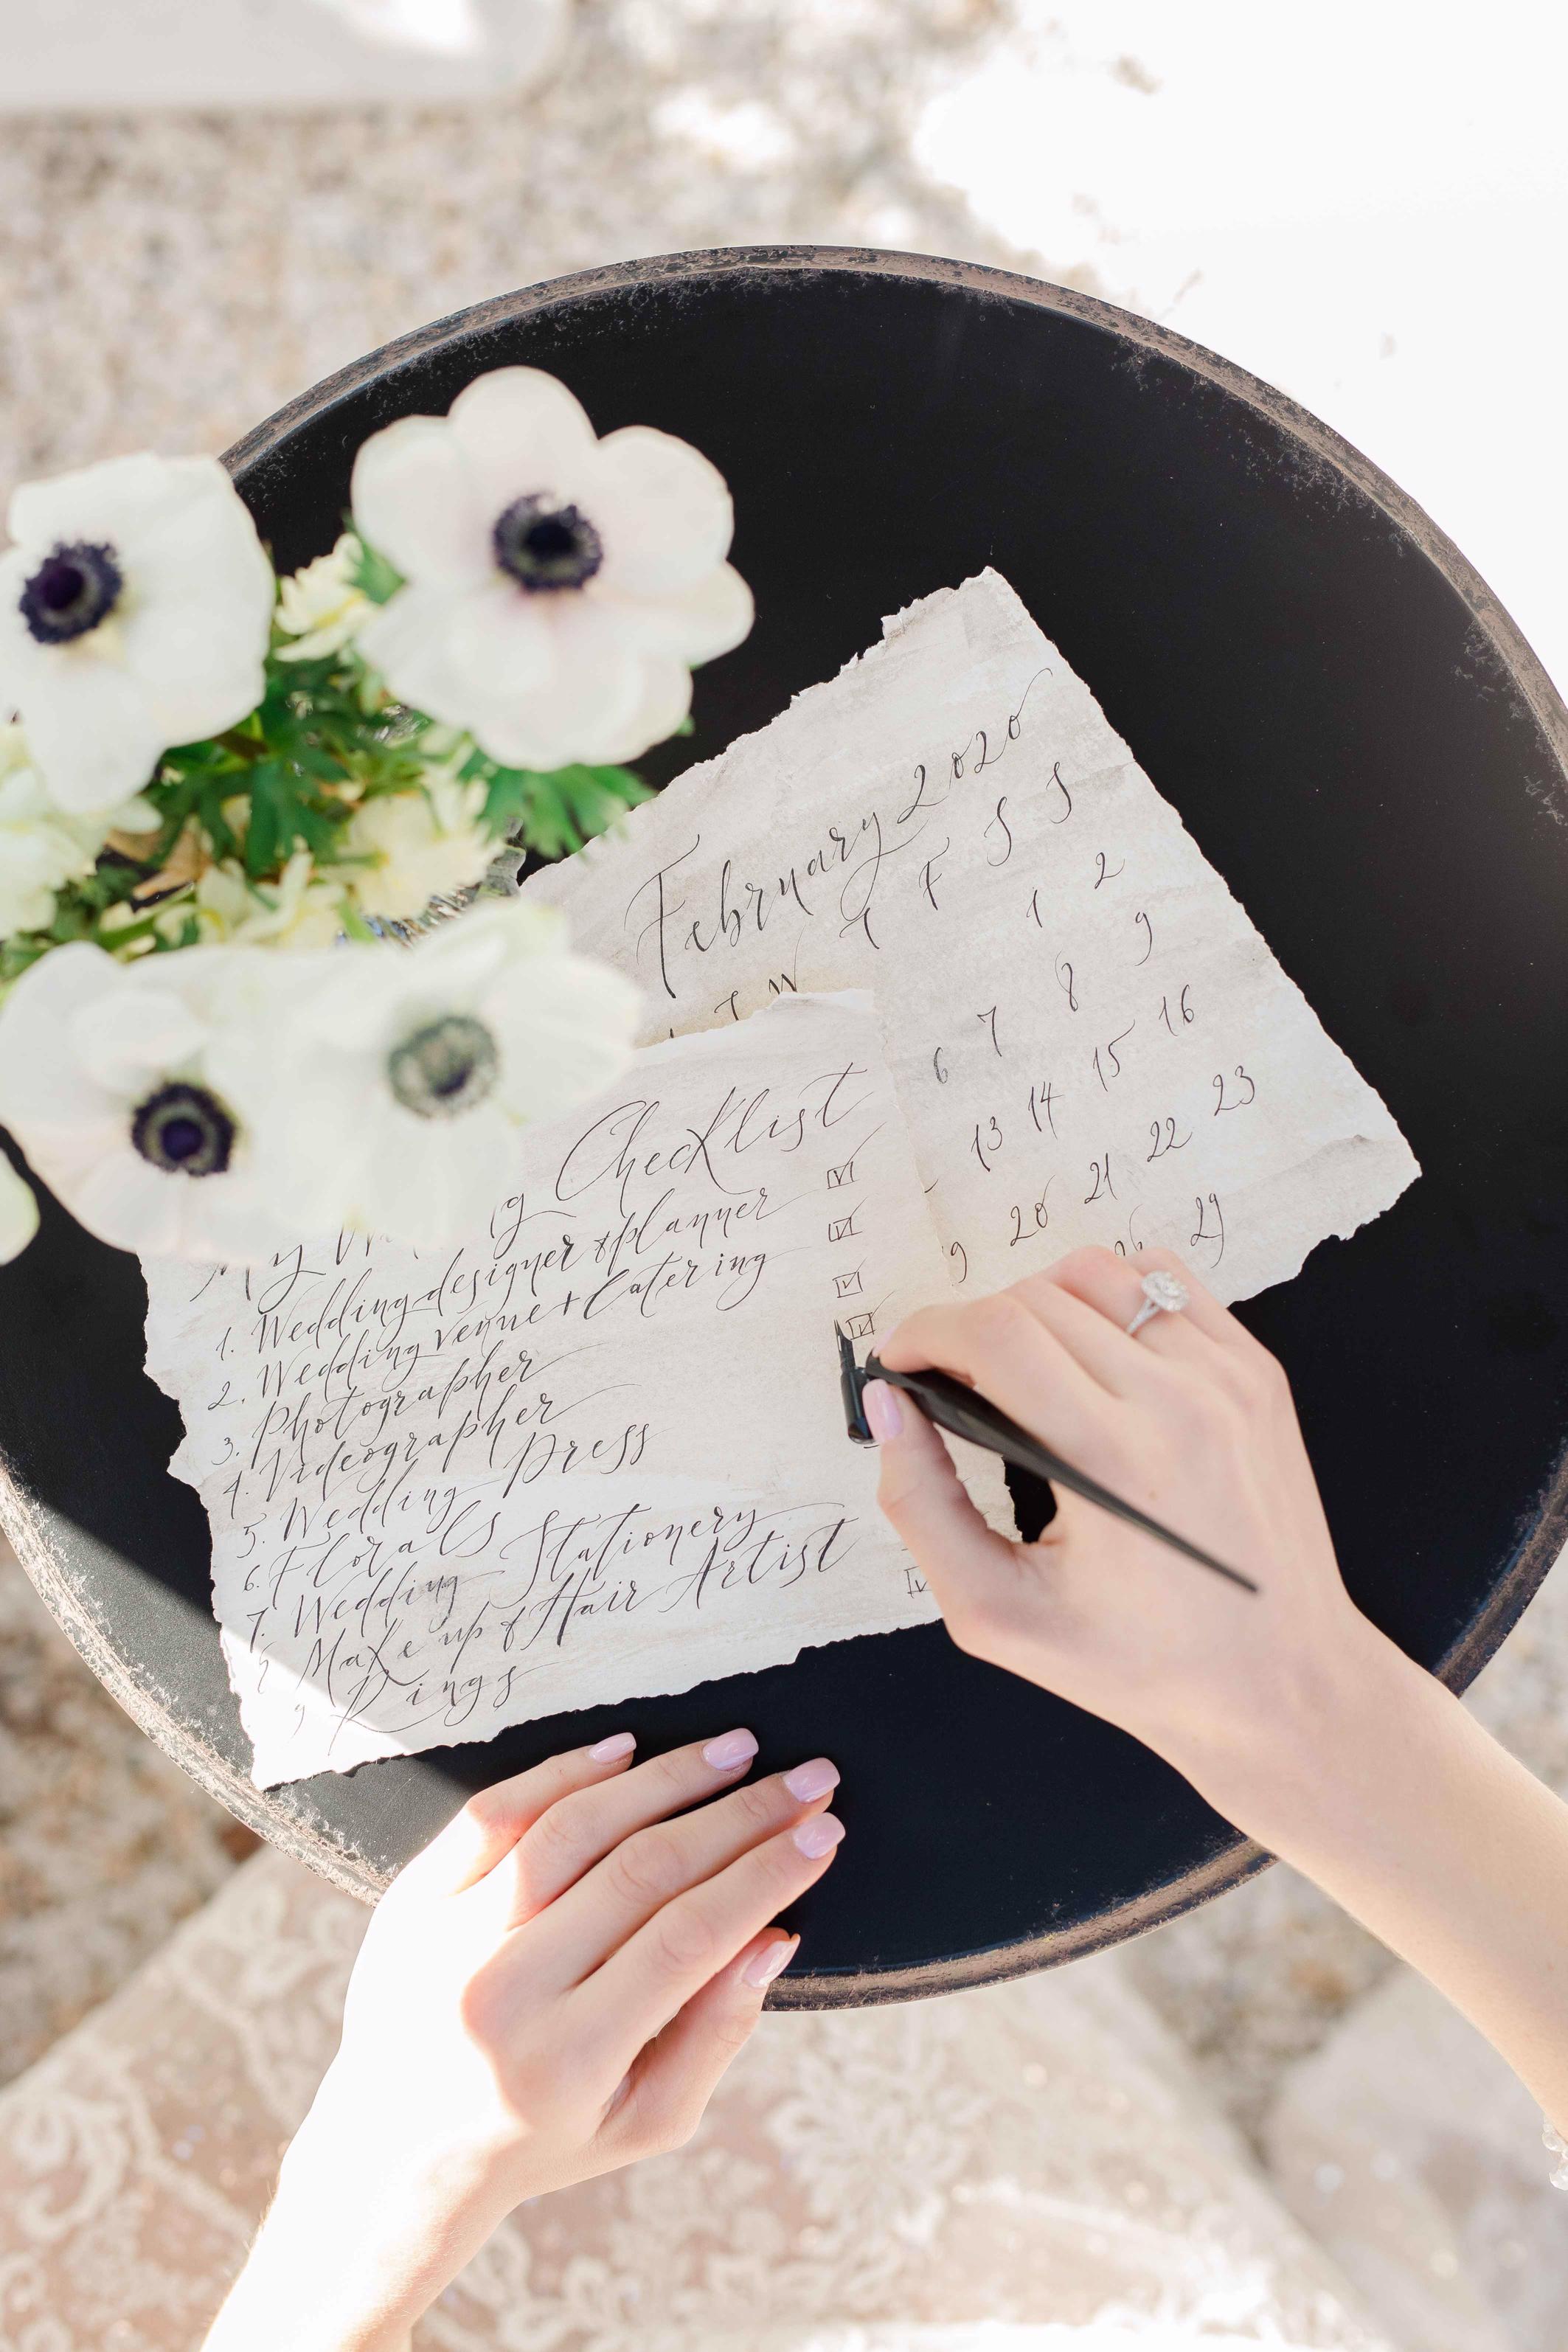 February 2020
T W T F S S
1 2
6 7 8 9
13 14 15 16
20 21 22 23
29
My Checklist
1. Wedding designer & planner
2. Wedding venue + Catering
3. Photographer
4. Videographer
5. Wedding Press
6. Florals
7. Wedding Stationery
Make up & Hair Artist
9 Rings